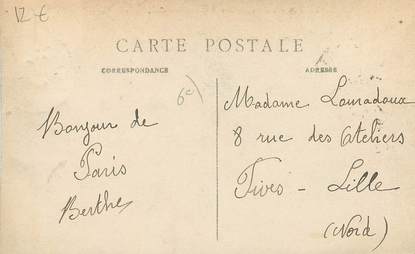 12 €
CARTE POSTALE
CORRESPONDANCE
ADRESSE
6c)
Bonjour de
Paris
Berthe
Madame Lauradoux
8 rue des Ateliers
Fives - Lille
(Nord)